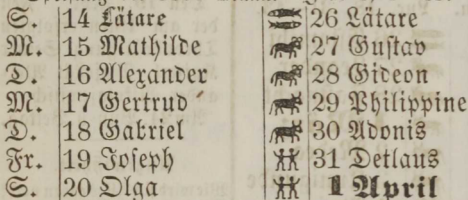 S. 14 Lätare 26 Lätare
M. 15 Mathilde 27 Gustav
D. 16 Alexander 28 Gideon
M. 17 Gertrud 29 Philippine
D. 18 Gabriel 30 Adonis
Fr. 19 Joseph 31 Detlaus
S. 20 Olga 1 April